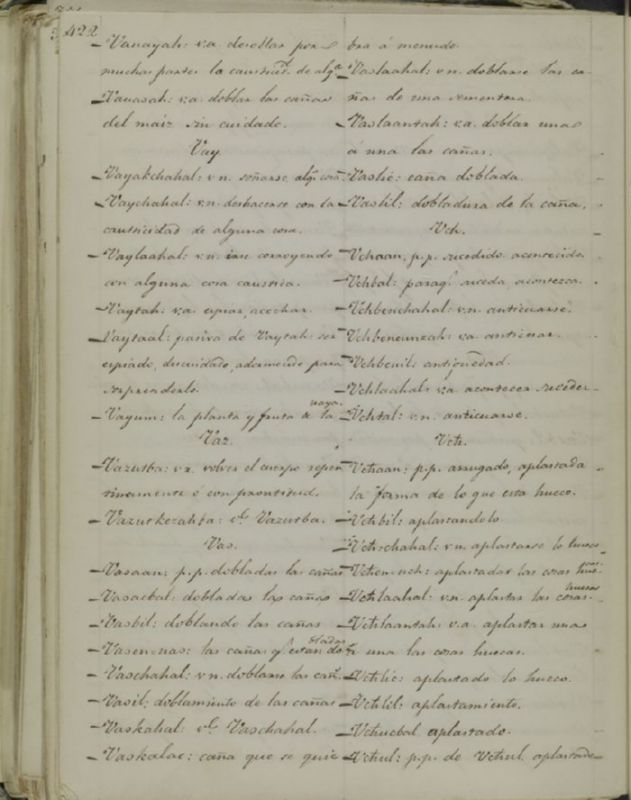 422
Vanayah: v.a. desollar por
muchas partes la causticd. de algª
Vauasah: v.a. doblar las cañas
del maiz sin cuidado.
Vay.
Vayakchahal: v.n. soñarse algª cosª
Vaychahal: v.n. desbacerse con la
causticidad de alguna cosa.
Vaylaahal: v.n. irse corroyendo
con alguna cosa caustica.
Vaytah: v.a. espiar, acechar.
Vaytaal: pasiva de Vaytah: ser
espiado, descuidado, adormecido para
sorprenderlo.
Vayum: la planta y fruta de la
uaya.
Vaz.
Vazutba: v.r. volver el cuerpo repen
tinamente ó con prontitud.
Vazutkezahba: vl. Vazutba.
Vas.
Vasaan: p.p. dobladas las cañas
Vasacbal: dobladas las cañas
Vasbil: doblando las cañas
Vasencuas: las cañas q. estan do
bladas
Vaschahal: v.n. doblarse las cañs
Vasil: doblamiento de las cañas
Vaskahal: vl. Vaschahal.
Vaskalac: caña que se quie
bra á menudo.
Vaslaahal: v.n. doblarse las ca
ñas de una sementera.
Vaslaantah: v.a. doblar una
á una las cañas.
Ваslic: caña doblada.
Vaslil: dobladura de la caña.
Vch.
Vchaan, p.p. sucedido acontecido
Vchbal: paraq. suceda, acontezca.
Vchbenchahal: v.n. anticuarse.
Vchbencunzah: v.a. anticuar.
Vchbenil: antigüedad.
Vchlaahal: v.a. acontecer suceder
Vchtal: v.n. anticuarse.
Vch.
Vchaan: p.p. arrugado, aplastada
la forma de lo que esta hueco.
Vchbil: aplastandolo
Vchchahal: v.n. aplastarse lo hueco
Vchencuch: aplastadas las cosas hue
cas.
Vchlaahal: v.n. aplastar las cosas
huecas
Vchlaantah: v.a. aplastar una
á una las cosas huecas.
Vchlic: aplastado lo hueco.
Vchlil: aplastamiento.
Vchucbal aplastado.
Vchul: p.p. de Vchul aplastado